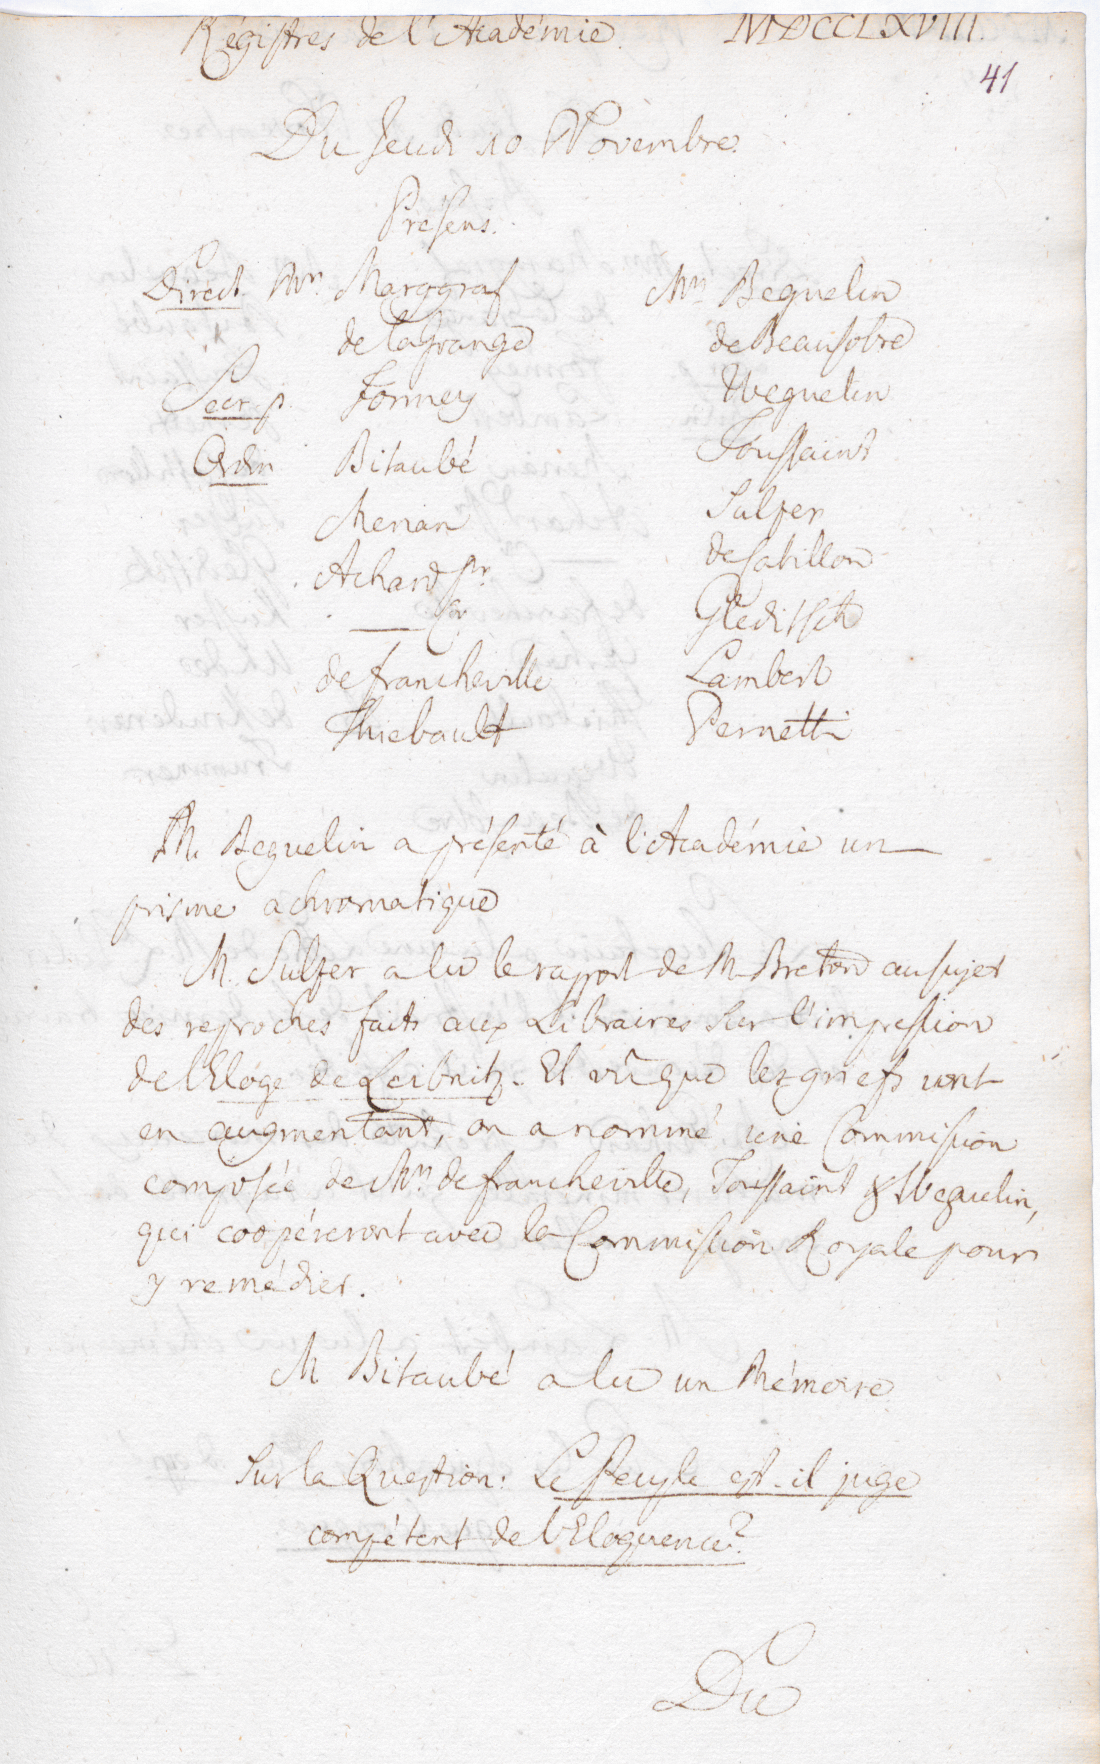 Régistres de l'Académie. MDCCLXVIII
41
Du Jeudi 10 Novembre.
Presens.
Direct. Mrs. Marggraf
de la Grange
Secr. p. Formey
Ordin Bitaubé
Merian
Achard Pr.
de Francheville
Thiebault
Mrs Beguelin
de Beausobre
Weguelin
Toussaint
Sulzer
de Catillon
Gleditsch
Lambert
Pernetti
M. Beguelin a présenté à l'Académie un
prisme achromatique
M. Sulzer a lu le rapport de M. Breton au sujet
des reproches faits aux Libraires sur l'impression
de l'Eloge de Leibnitz. Et vû que les griefs vont
en augmentant, on a nommé une Commission
composée de Mrs. de Francheville, Toussaint & Weguelin,
qui coopéreront avec la Commission Royale pour
y remédier.
M Bitaubé a lu un Mémoire
Sur la Question: Le Peuple est-il juge
compétent de l'Eloquence?
Du